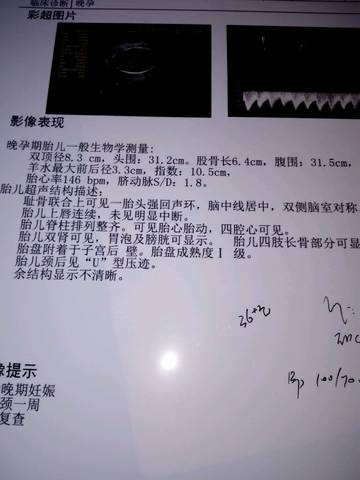 临床诊断|晚孕
彩超图片
影像表现
晚孕期胎儿一般生物学测量:
双顶径8.3 cm, 头围: 31.2cm。股骨长6.4cm, 腹围: 31.5cm,
羊水最大前后径3.3cm, 指数: 10.5cm,
胎心率146 bpm, 脐动脉S/D: 1.8。
胎儿超声结构描述:
耻骨联合上可见一胎头强回声环, 脑中线居中, 双侧脑室对称.
胎儿上唇连续, 未见明显中断。
胎儿脊柱排列整齐。可见胎心胎动, 四腔心可见。
胎儿双肾可见, 胃泡及膀胱可显示。 胎儿四肢长骨部分可显
胎盘附着于子宫后 壁。胎盘成熟度Ⅰ 级。
胎儿颈后见“U”型压迹。
余结构显示不清晰。
36+2
Bp 100/70
像提示
晚期妊娠
颈一周
复查